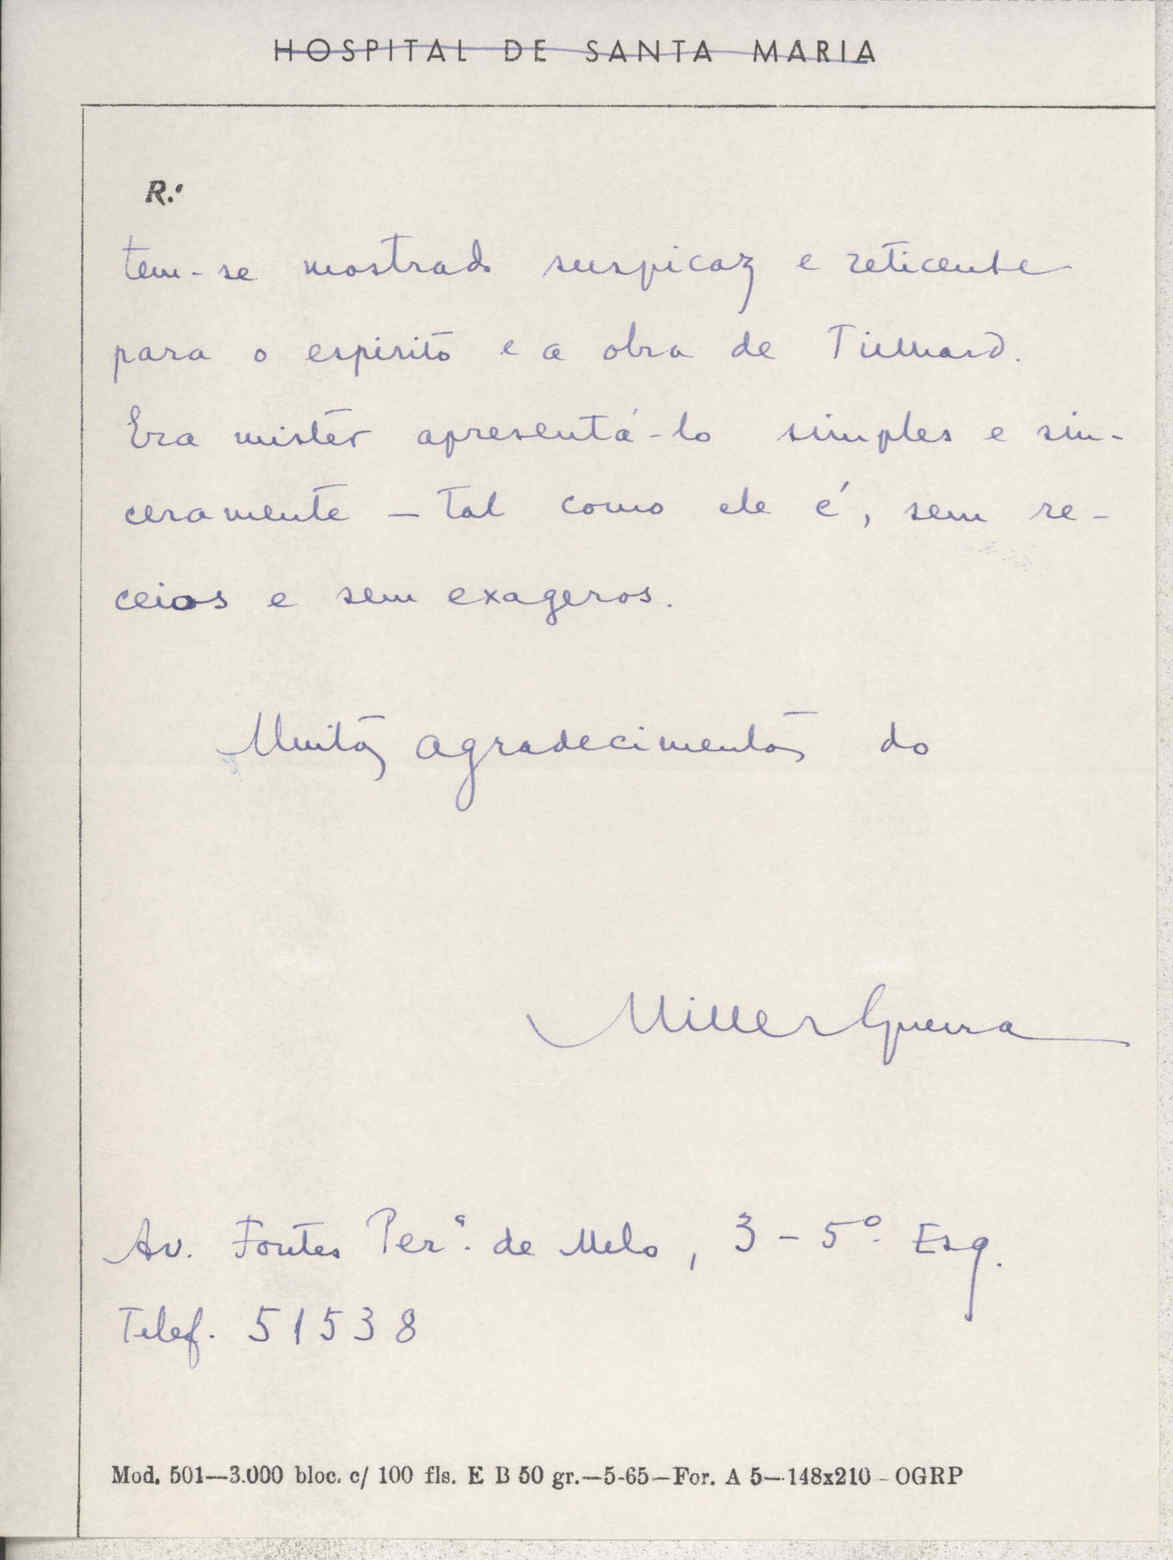 HOSPITAL DE SANTA MARIA
R.e
tem-se mostrado suspicaz e reticente
para o espírito e a obra de Tielhard.
Era mister apresentá-lo simples e sin-
ceramente – tal como ele é, sem re-
ceios e sem exageros.
Muitos agradecimentos do
Miller Guerra
Av. Fontes Per.ª de Melo, 3 – 5.º Esq.
Telef. 51538
Mod. 501—3.000 bloc. c/ 100 fls. E B 50 gr.—5-65—For. A 5—148x210 - OGRP